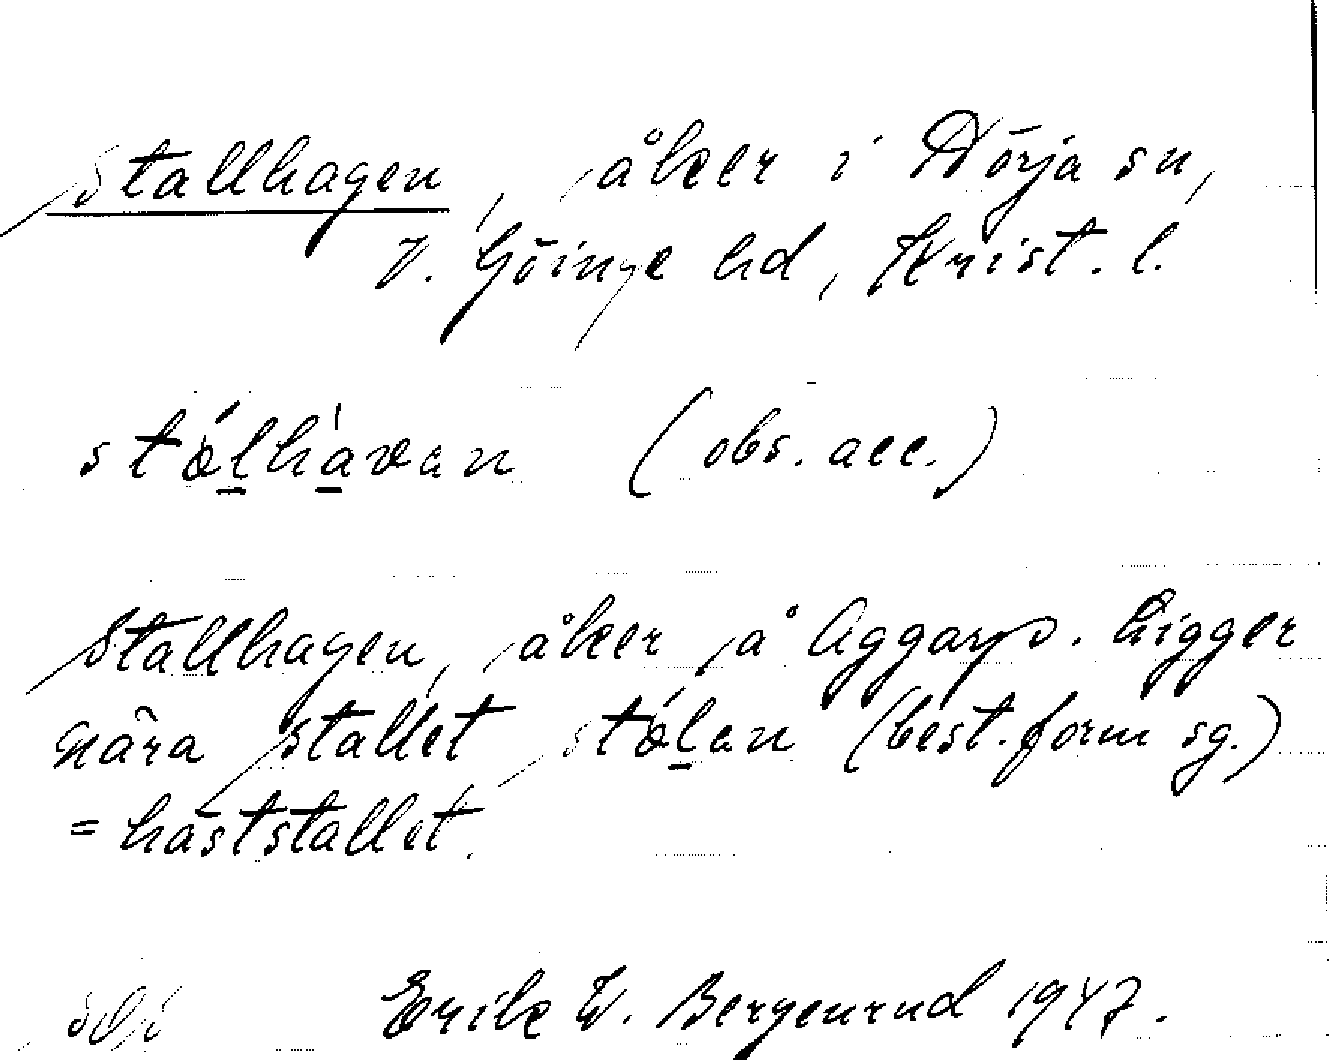 Stallhagen, åker i Nörja sn,
V. Göinge hd, Krist. l.
stólhàvan (obs. acc.)
Stallhagen, åker å Aggarp. Ligger
nära stallet stólan (best. form sg.)
= häststallet.
Erik W. Bergenrud 1947.